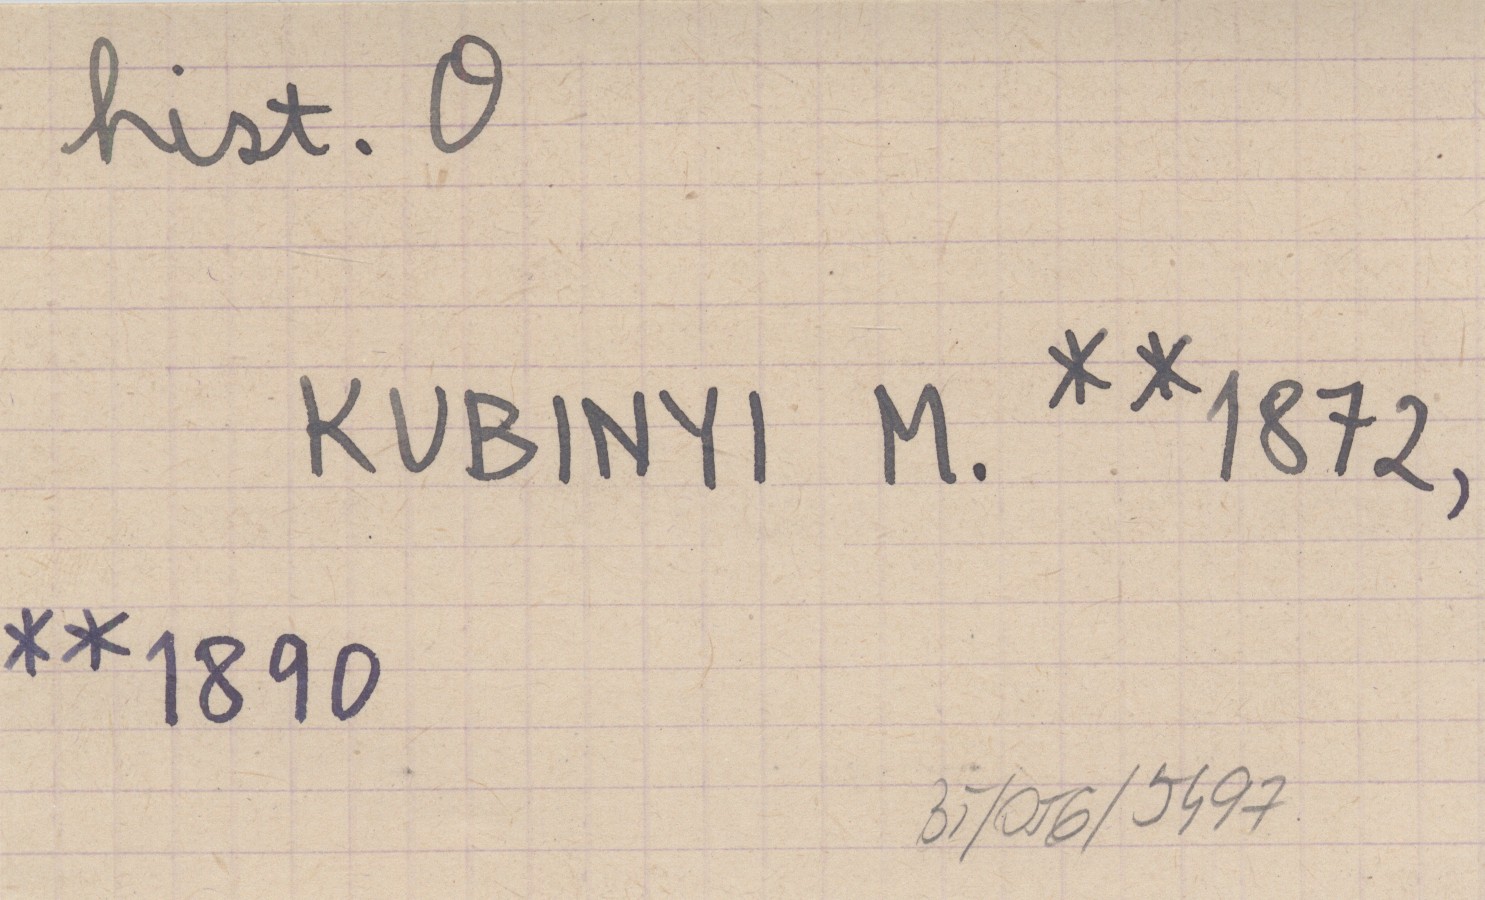 hist. O
KUBINYI M. **1872,
**1890
35/056/5497